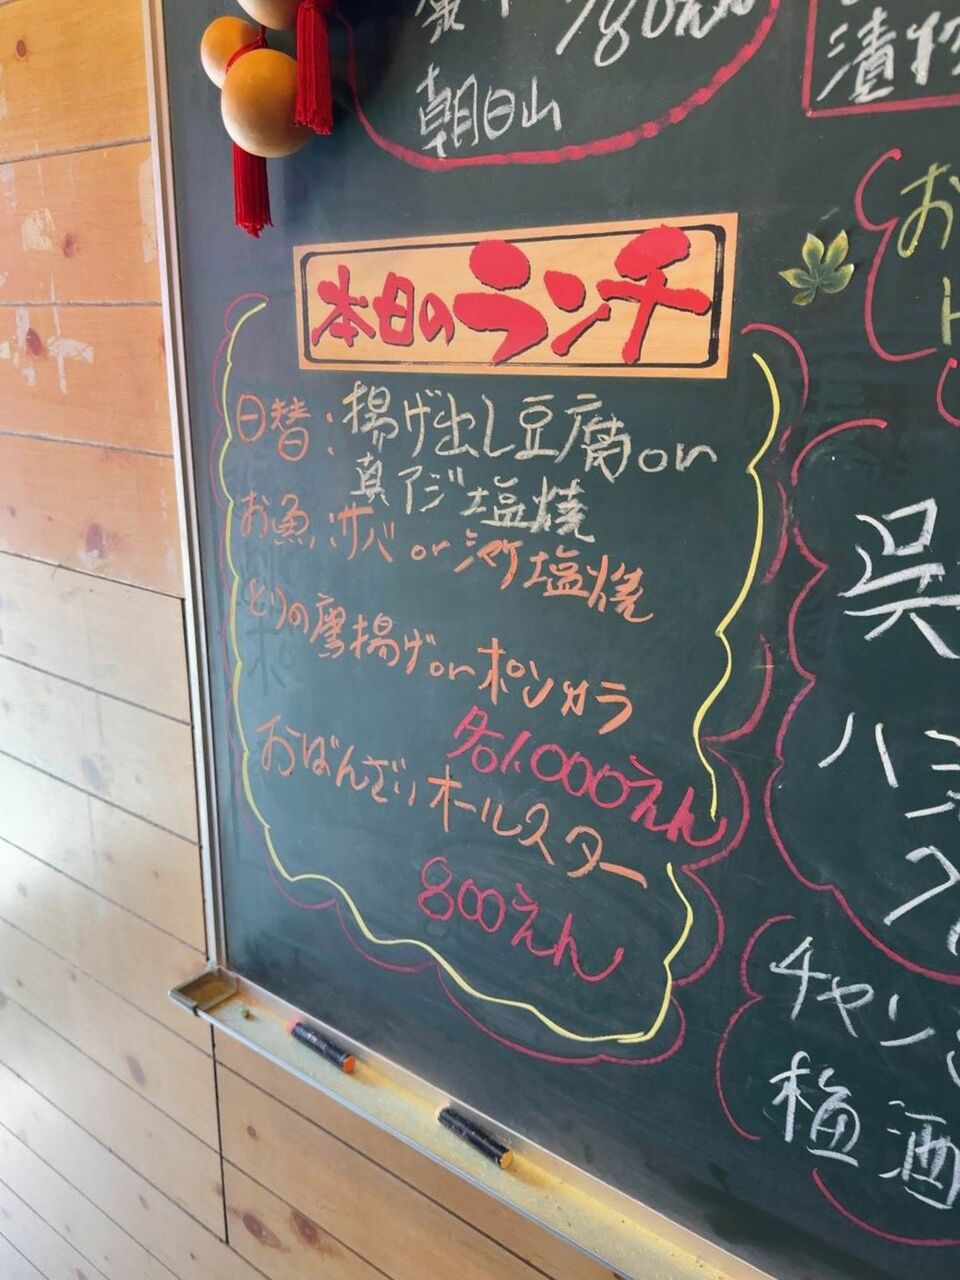 780えん
朝日山
漬物
本日のランチ
日替:揚げ出し豆腐or
真アジ塩焼
お魚:サバor シャケ塩焼
とりの唐揚げorポンカラ
各1,000えん
おばんざいオールスター
800えん
お
ト
呉
ハ
チャン
梅酒